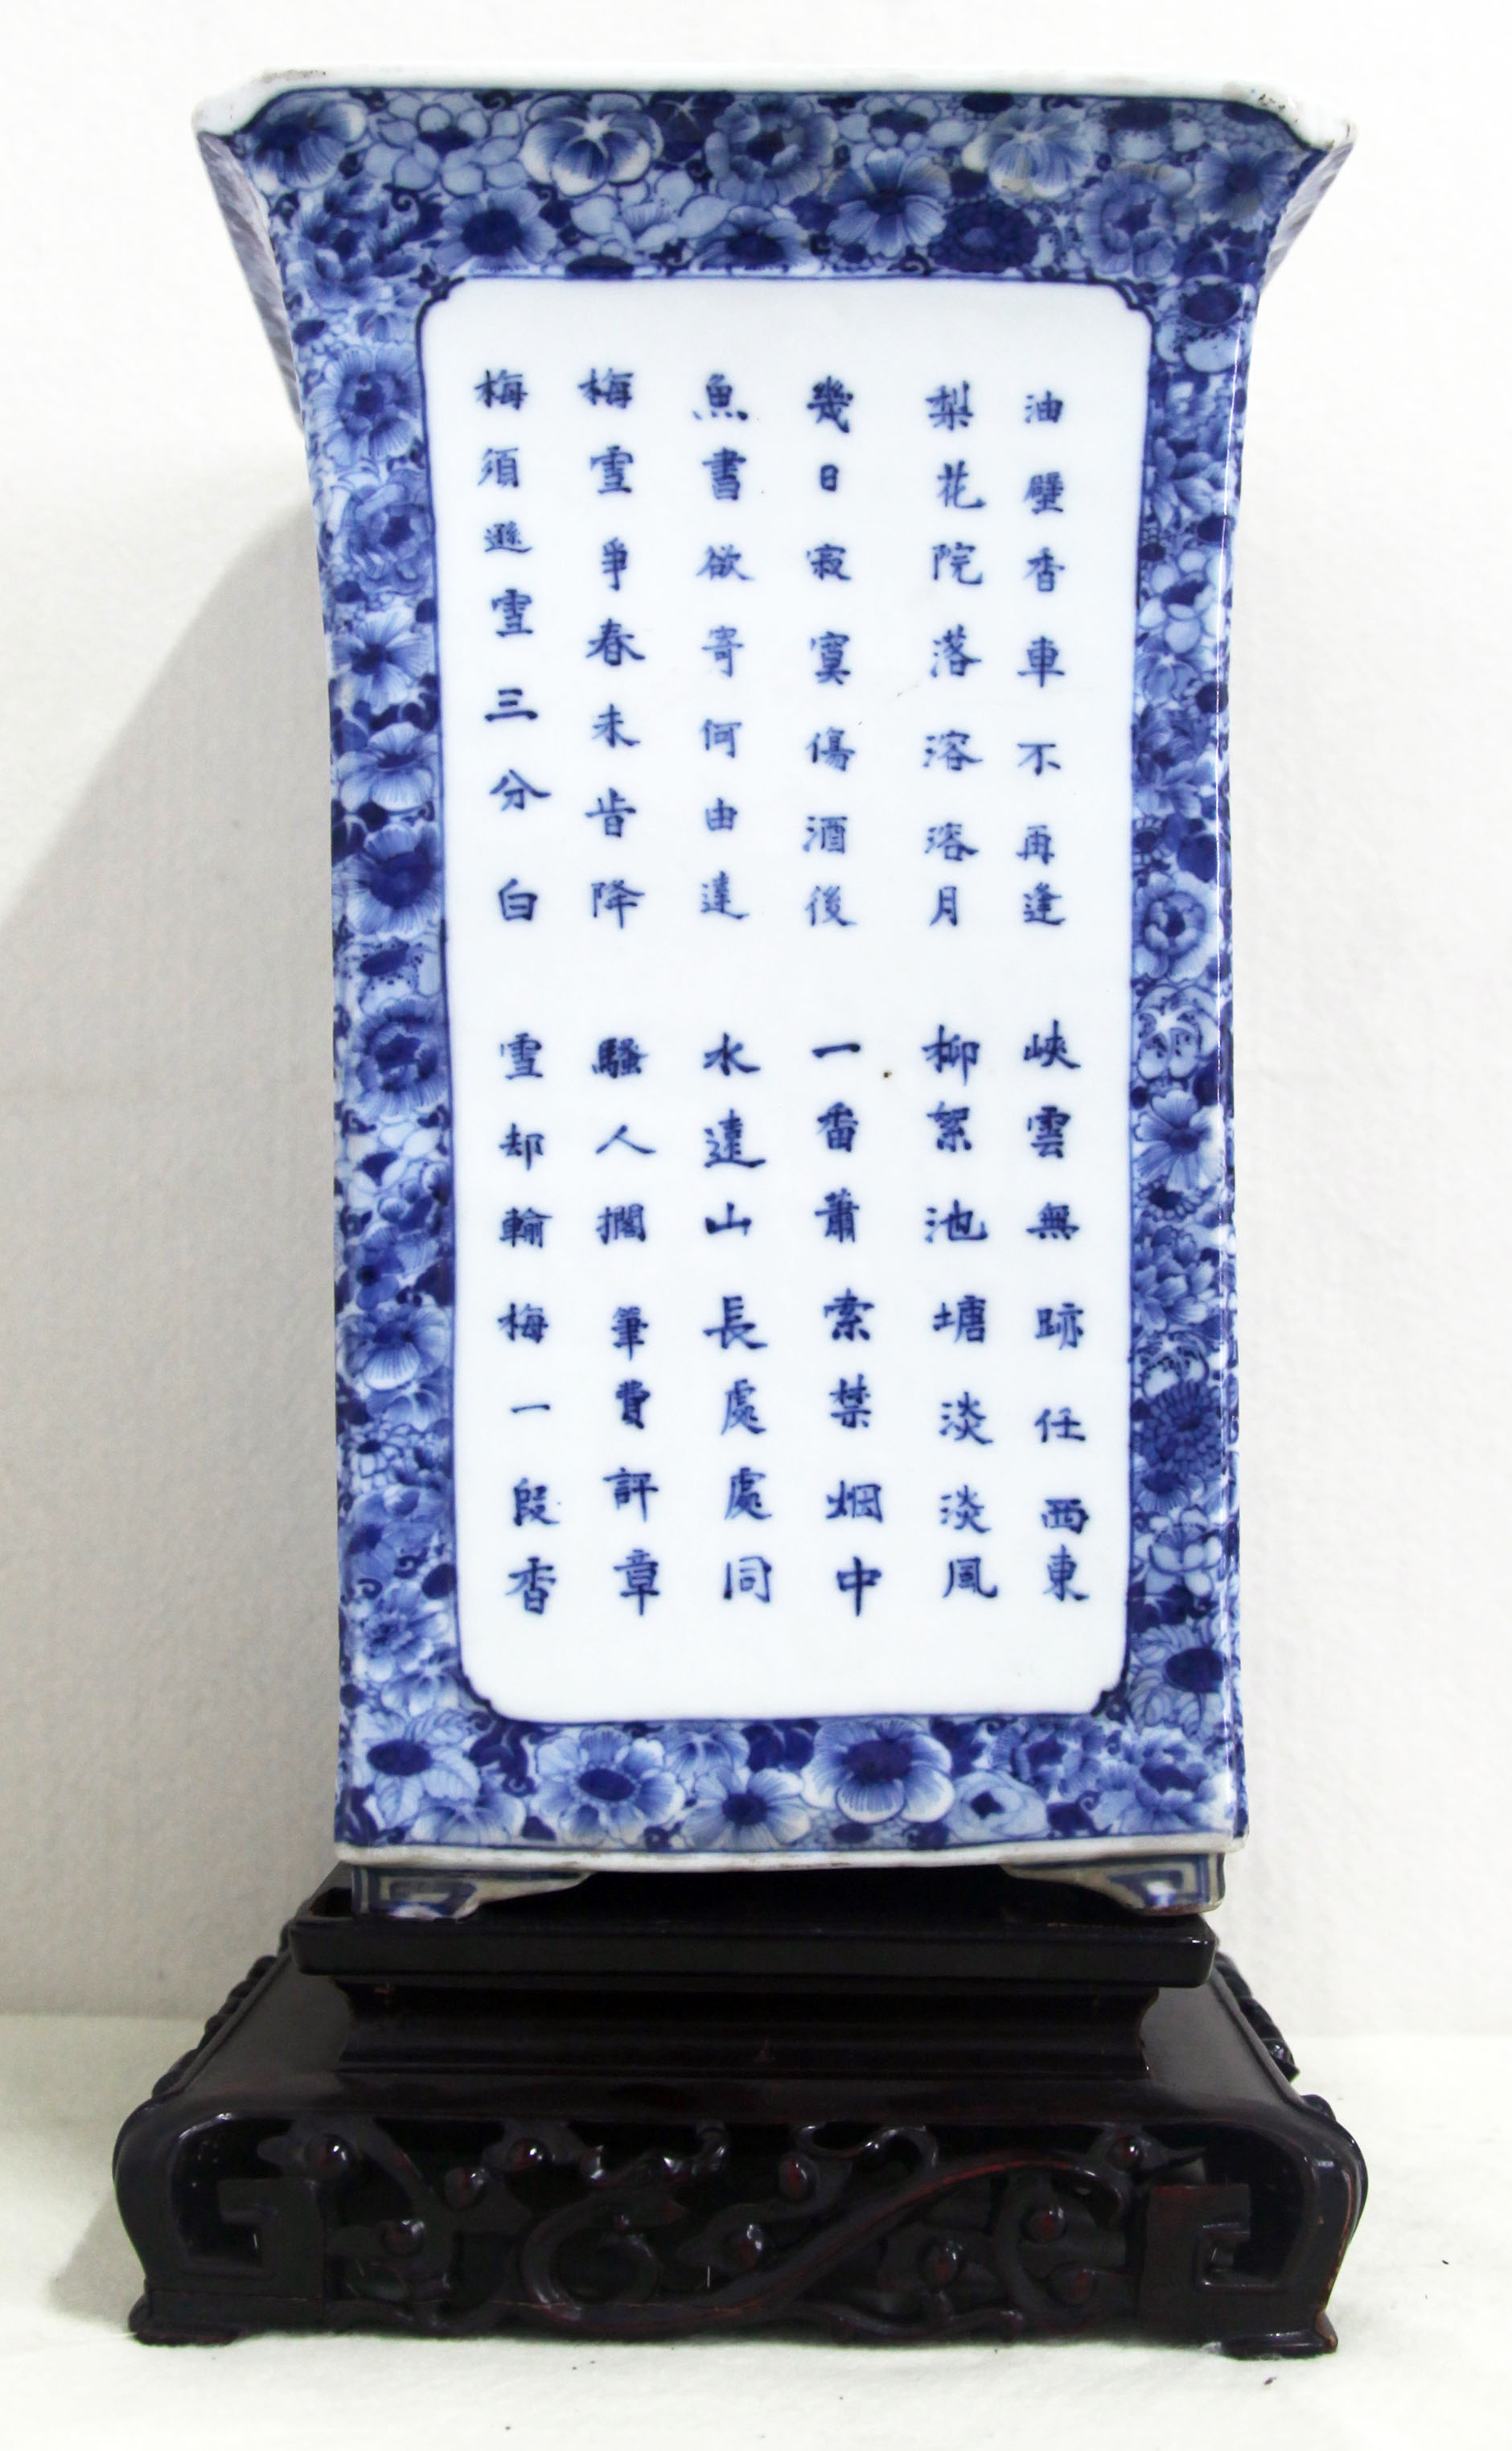 油壁香車不再逢 峽雲無跡任西東
梨花院落溶溶月 柳絮池塘淡淡風
幾日寂寞傷酒後 一番蕭索禁烟中
魚書欲寄何由達 水遠山長處處同
梅雪爭春未肯降 騷人擱筆費評章
梅須遜雪三分白 雪却輸梅一段香